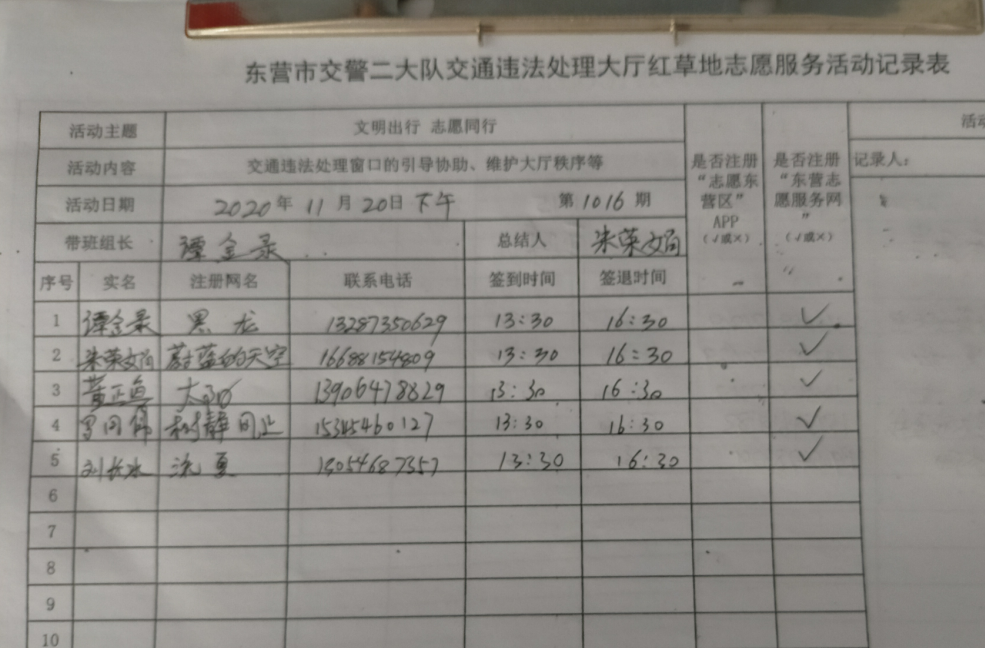 东营市交警二大队交通违法处理大厅红草地志愿服务活动记录表
活动主题 文明出行 志愿同行
活动内容 交通违法处理窗口的引导协助、维护大厅秩序等
活动日期 2020年 11月20日下午 第1016期
是否注册“志愿东营区”APP（√或×）
是否注册“东营志愿服务网”（√或×）
活动
记录人：
带班组长 谭金录 总结人 朱荣娟
序号 实名 注册网名 联系电话 签到时间 签退时间
1 谭金录 黑龙 13287350629 13:30 16:30 ✓
2 朱荣娟 蔚蓝的天空 16688154809 13:30 16:30 ✓
3 13906478829 13:30 16:30 ✓
4 15345460127 13:30 16:30 ✓
5 刘长冰 沈夏 13054687357 13:30 16:30 ✓
6
7
8
9
10